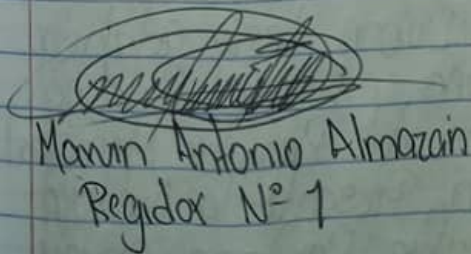 Marvin Antonio Almazán
Regidor Nº 1